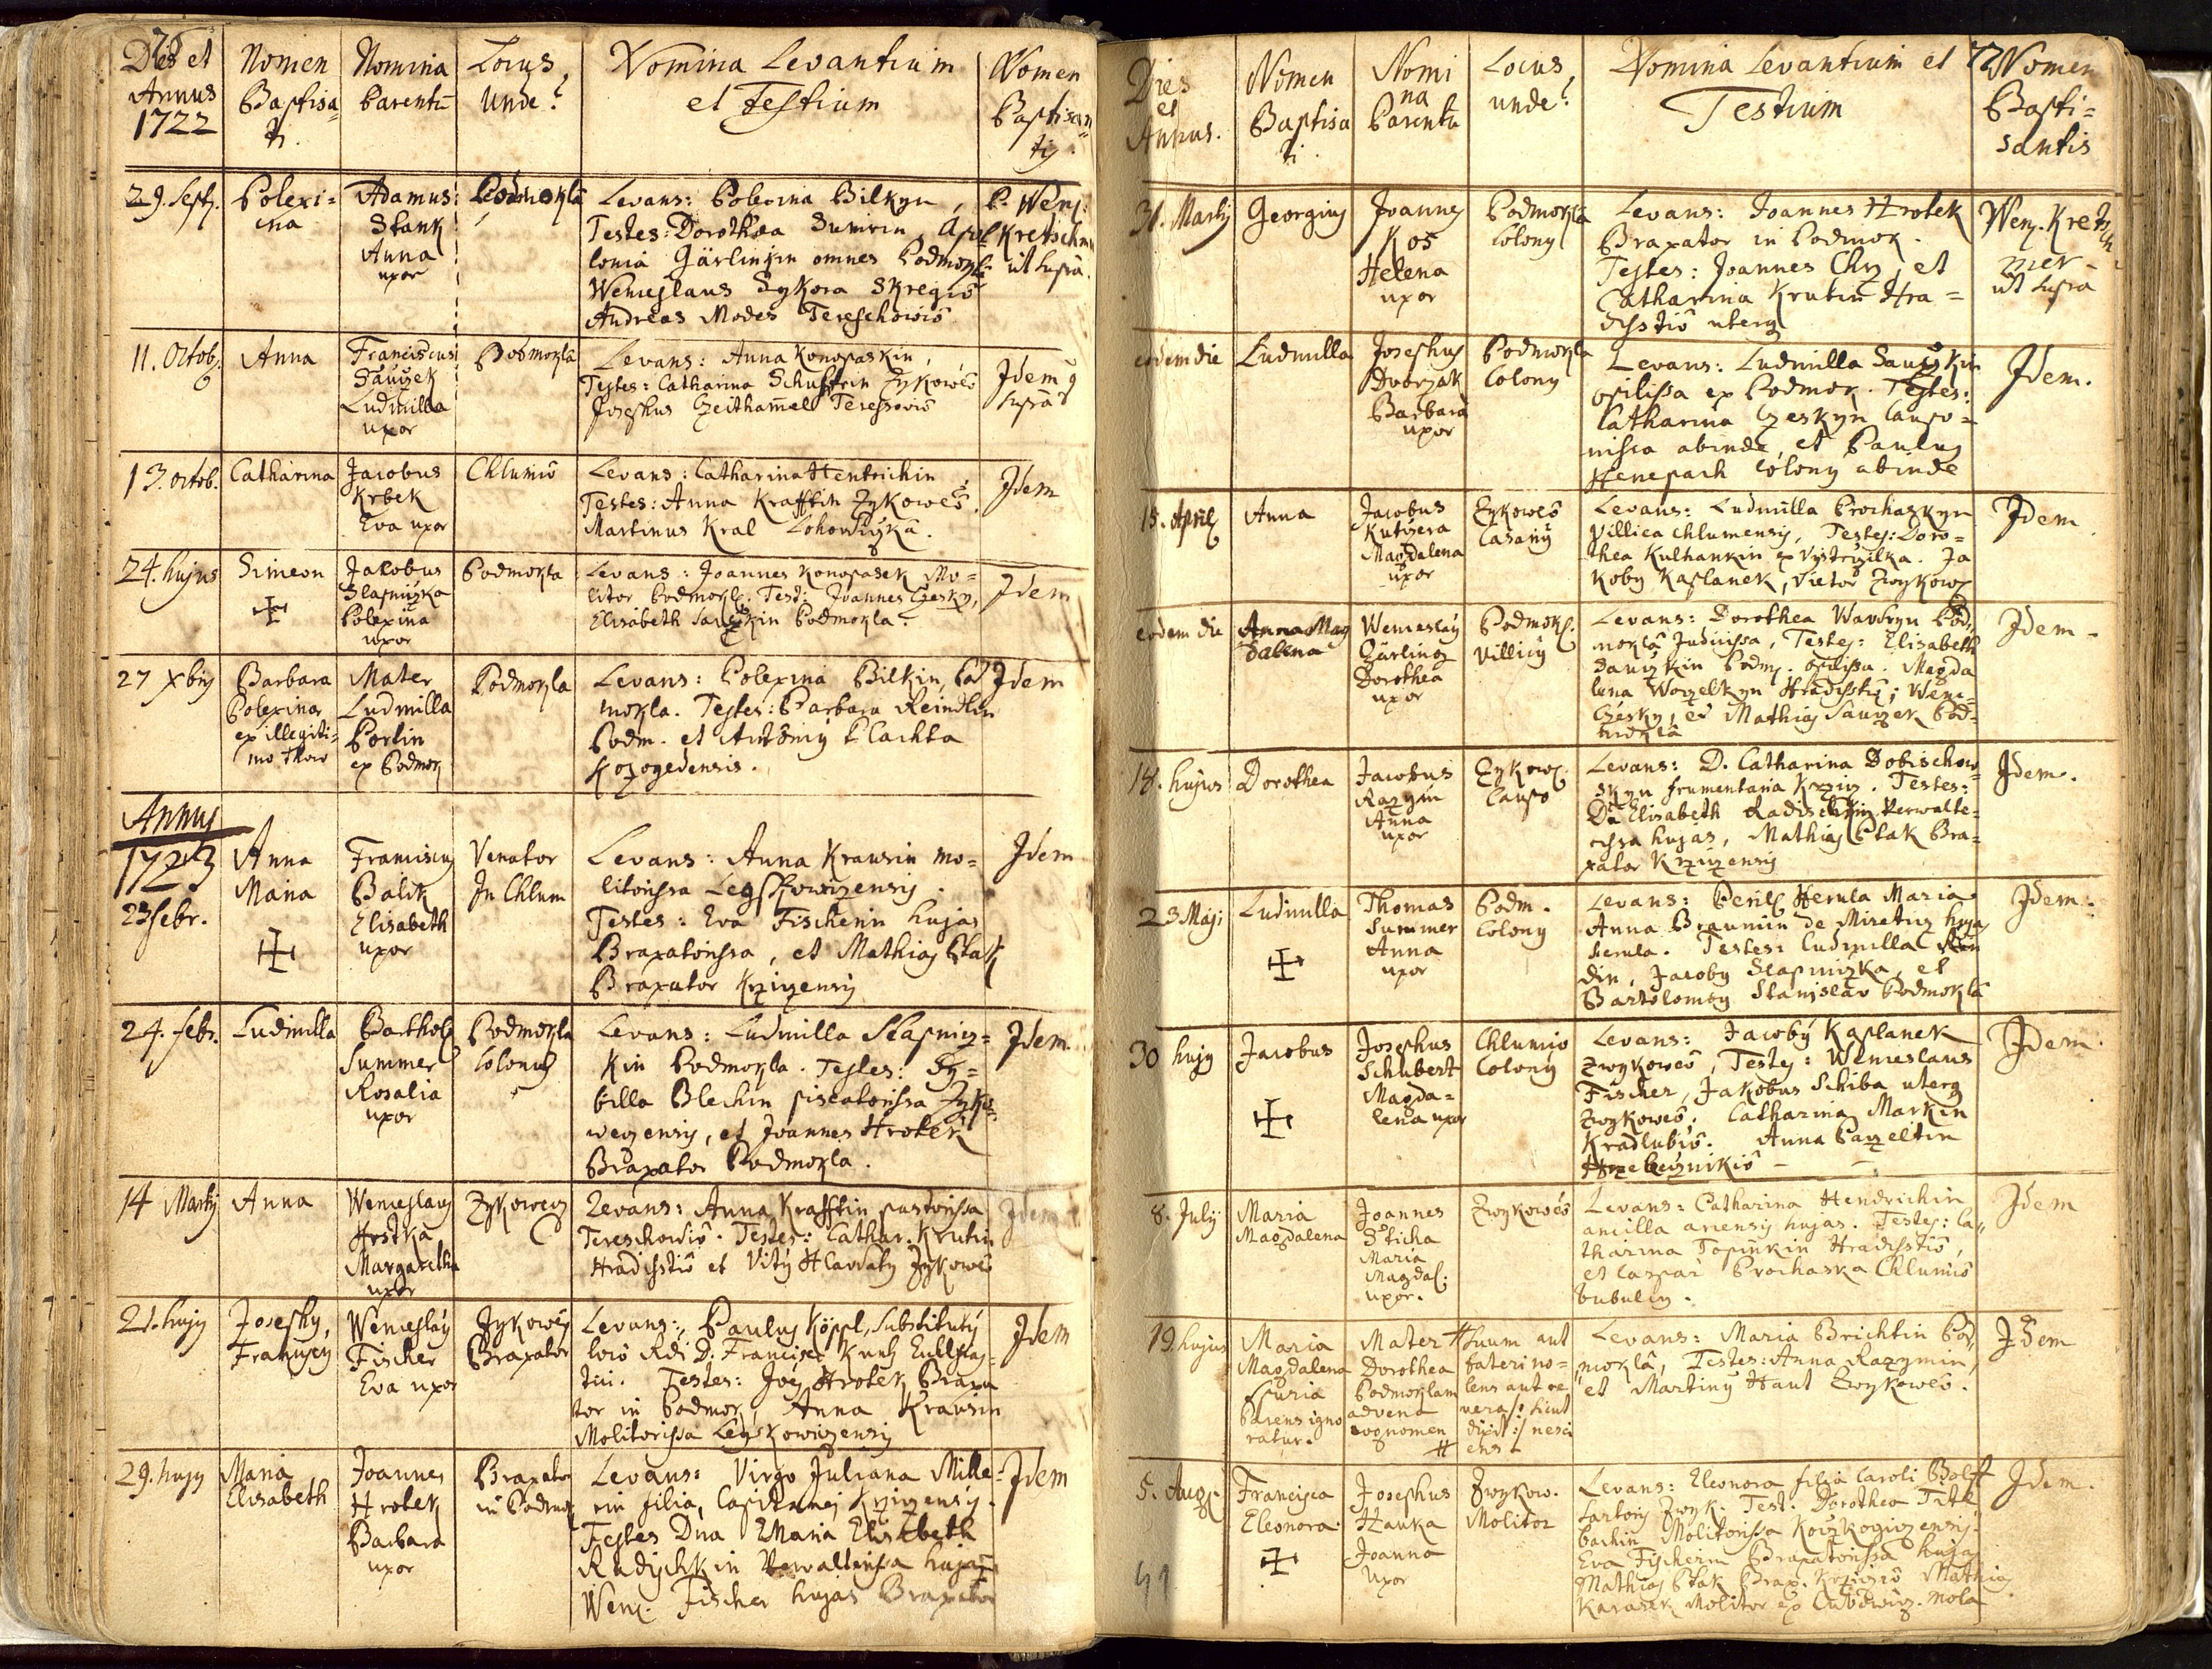 76
Dies et
Annus
1722
Nomen
Baptisa=
ti.
Nomina
Parentū
Locus,
Unde?
Nomina Levantium
et Testium
Nomen
Baptisan=
tis.
29. Sept.
Polexi=
na
Adamus
Stank
Anna
uxor
Podmokla
Levans: Polexina Bilkyn,
Testes: Dorothea Sumrin, Apol
lonia Gärlingin omnes Podmokla
Wenceslaus Sykora Skregiō
Andreas Modes Tereschowiō
P. Wenc:
Kretschm
ut supra.
11. Octob.
Anna
Franciscus
Sauczek
Ludmilla
uxor
Podmokla
Levans: Anna Konopaskin,
Testes: Catharina Schusterin Zykoweō
Josephus Czeithamel Teressoviō
Idem q
supra
13. Octob.
Catharina
Jacobus
Krbek
Eva uxor
Chlumiō
Levans: Catharina Hentrichin,
Testes: Anna Krafftin Zykoweō.
Martinus Kral Lohowiczka.
Idem
24. hujus
Simeon
Jakobus
Slapniczka
Polexina
uxor
Podmokla
Levans: Joannes Konopasek Mo=
litor Podmokl. Test: Joannes Czesky,
Elisabeth Sauczkin Podmokla.
Idem
27 Xbris
Barbara
Polexina
ex illegiti=
mo thoro
Mater
Ludmilla
Portin
ex Podmok
Podmokla
Levans: Polexina Bilkin, Pod
mokla. Testes: Barbara Reindlin
Podm. et Antonius Plachta
Kozogedensis.
Idem
Annus
1723
23 febr.
Anna
Maria
Franciscus
Balik
Elisabeth
uxor
Venator
In Chlum
Levans: Anna Krausin mo=
litorissa Legsskowizensis.
Testes: Eva Fischerin hujas
Braxatorissa, et Mathias Ptak
Braxator Krziczensis
Idem
24. febr.
Ludmilla
Barthol.
Summer
Rosalia
uxor
Podmokla
Colonus
Levans: Ludmilla Slapnicz=
kin Podmokla. Testes: Sy=
billa Blechin piscatorissa Zyko=
wecensis, et Joannes Hrotek
Braxator Podmokla.
Idem
14 Martij
Anna
Wenceslaus
Hostka
Margaretha
uxor
Zykowec
Levans: Anna Krafftin pastorissa
Tereschowiō. Testes: Cathar. Krutin
Hradisstiō et Vitus Hlawaty Zykoweō
Idem
21. hujus
Josephus,
Franciscus
Wenceslaus
Fischer
Eva uxor
Zykowes
Braxator
Levans: Paulus Köppl, Substitutus
loco Rdi D. Francisci Kuntz Ecclesias=
tici. Testes: Joes Hrotek Braxa
tor in Podmok, Anna Krausin
Molitorissa Legskowizensis
Idem
29. hujus
Maria
Elisabeth
Joannes
Hrotek
Barbara
uxor
Braxator
in Podmok
Levans: Virgo Juliana Mille=
rin filia, Capitanei Krziczensis.
Testes Dna Maria Elisabeth
Radischkin Verwalterissa hujas
Wenc. Fischer hujas Braxator
Idem
77
Dies
et
Annus.
Nomen
Baptisa
ti.
Nomi
na
Parentū
Locus
unde?
Nomina Levantium et
Testium
Nomen
Bapti=
santis
31. Martij
Georgius
Joannes
Kos
Helena
uxor
Podmokla
Colonus
Levans: Joannes Hrotek
Braxator in Podmok.
Testes: Joannes Chyz, et
Catharina Krutin Hra=
disstiō uterq
Wenc. Kretsch
mer
ut supra
eodem die
Ludmilla
Josephus
Dvorzak
Barbara
uxor
Podmokla
Colonus
Levans: Ludmilla Sauczkin
opilissa ex Podmok. Testes:
Catharina Czeskyn Caupo=
nissa abinde, et Paulus
Henepach colonus abinde
Idem.
15. April.
Anna
Jacobus
Kutisera
Magdalena
uxor
Zykoweō
Casarius
Levans: Ludmilla Prochaskyn
Villica Chlumensis, Testes: Doro=
thea Kulhankin ex Wystrczilka. Ja
kobus Kaplanek, Vietor Zwykowes
Idem
eodem die
Anna Mag
dalena
Wenceslaus
Gärling
Dorothea
uxor
Podmokl.
Villicus
Levans: Dorothea Wawryn Pod=
mokla Judicissa, Testes: Elisabeth
Sauczkin Podm. opilissa. Magda
lena Woczelkyn Hradisstiō; Wenc=
Czesky, et Mathias Sauczek Pod=
mokla
Idem.
18. hujus
Dorothea
Jacobus
Razym
Anna
uxor
Zykow.
Caupo
Levans: D. Catharina Dobischow=
skyn frumentaria Krzicz. Testes:
Da Elisabeth Radischkin Verwalte=
rissa hujas, Mathias Ptak Bra=
xator Krziczensis
Idem.
23 Maji
Ludmilla
Thomas
Summer
Anna
uxor
Podm.
Colonus
Levans: Peril. Herula Maria
Anna Braunin de Miretus hujas
Herula. Testes: Ludmilla Rein
din, Jacobus Slapniczka, et
Bartolomeus Stanislav Podmokla
Idem.
30 hujus
Jacobus
Josephus
Schubert
Magda=
lena uxor
Chlumiō
Colonus
Levans: Jacobus Kaplanek
Zwykoweō, Testes: Wenceslaus
Fischer, Jakobus Schiba uterq
Zwykoweō. Catharina Markin
Kradlubiō. Anna Paczeltin
Idem.
8. Julij
Maria
Magdalena
Joannes
Sticha
Maria
Magdal.
uxor.
Zwykoweō
Levans: Catharina Hendrichin
ancilla arensis hujas. Testes: Ca=
tharina Topinkin Hradisstiō,
et Caspar Prochaska Chlumiō
bubulcus.
Idem
19. hujus
Maria
Magdalena
Spuria
Parens igno
ratur.
Mater
Dorothea
Podmoklam
advena
cognomen
#
# suum aut
fateri no=
lens aut re
vera /: sicut
dixit :/ nesci
ens
Levans: Maria Brichtin Pod=
mokla, Testes: Anna Razymin,
et Martinus Haut Zwykoweō.
Idem
5. Aug.
Francisca
Eleonora
Josephus
Hauka
Joanna
Uxor
Zwykow.
Molitor
Levans: Eleonora filia Caroli Wolff
Sartoris Zwyk. Test: Dorothea Titl
bachin Molitorissa Koczkogizensis.
Eva Fischerin Braxatorissa hujas
Mathias Ptak Brax. Krziciō Mathias
Karasek Molitor ex Ludowicz. mola
Idem.